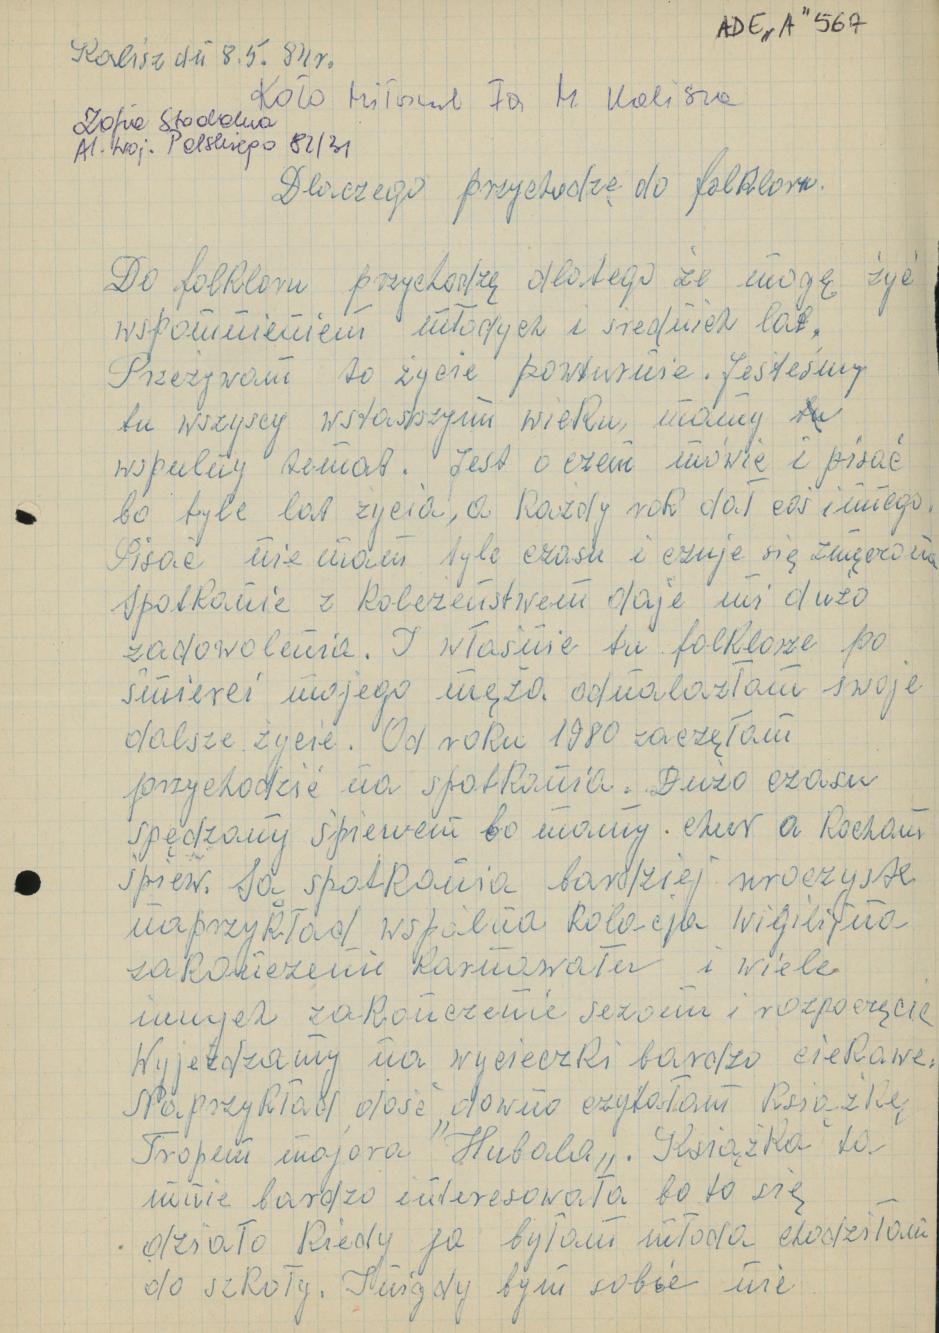 ADE„A"567
Kalisz dń 8.5. 84r.
Koło Miłosn. Fo. M Kalisza
Zofia
Al. Woj. Polskiego 82/31
Dlaczego przychodzę do folkloru.
Do folkloru przychodzę dlatego że mogę żyć
wspomnieniem młodych i srednich lat.
Przeżywam to życie powturnie. Jesteśmy
tu wszyscy wstarszym wieku, mamy tu
wspulny temat. Jest o czem mówić i pisać
bo tyle lat życia, a każdy rok dał coś innego.
Pisać nie mam tyle czasu i czuje się zmęczona
Spotkanie z koleżeństwem daje mi dużo
zadowolenia. I właśnie tu folklorze po
śmierci mojego męża odnalazłam swoje
dalsze życie. Od roku 1980 zaczęłam
przychodzić na spotkania. Dużo czasu
spędzamy śpiewem bo mamy. chur a kocham
śpiew. Są spotkania bardziej uroczyste
naprzykład wspólna kolacja wigilijna
zakończenie karnawału i wiele
innych zakończenie sezonu i rozpoczęcie
Wyjeżdzamy na wycieczki bardzo ciekawe.
Naprzykład dość dawno czytałam książkę
Tropem majora "Hubala„. Książka ta
mnie bardzo interesowała bo to się
działo kiedy ja byłam młoda chodziłam
do szkoły. I nigdy bym sobie nie